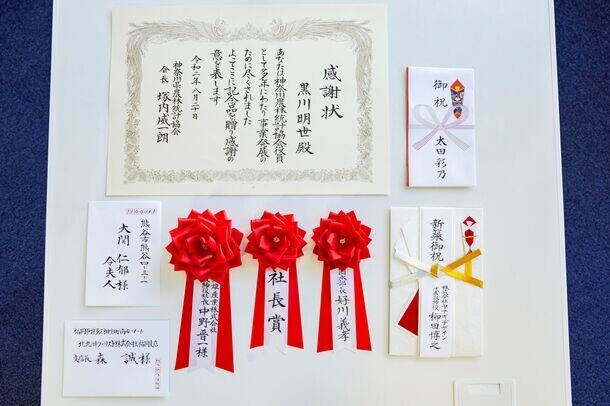 感謝状
黒川明世殿
あなたは神奈川農林統計協会役員
として多年にわたり事業発展の
ために尽くされました
よってここに記念品を贈り感謝の
意を表します
令和二年八月二十日
神奈川県農林統計協会
会長 塚内威一朗
御祝
太田彩乃
熊谷市熊谷四-三-二
大関仁郁様
令夫人
雄産業株式会社
締役社長 中野晋一様
社長賞
部長 好川義孝
新築御祝
株式会社ヤナギデザイン
代表取締役 柳田博之
支店長 森 誠様